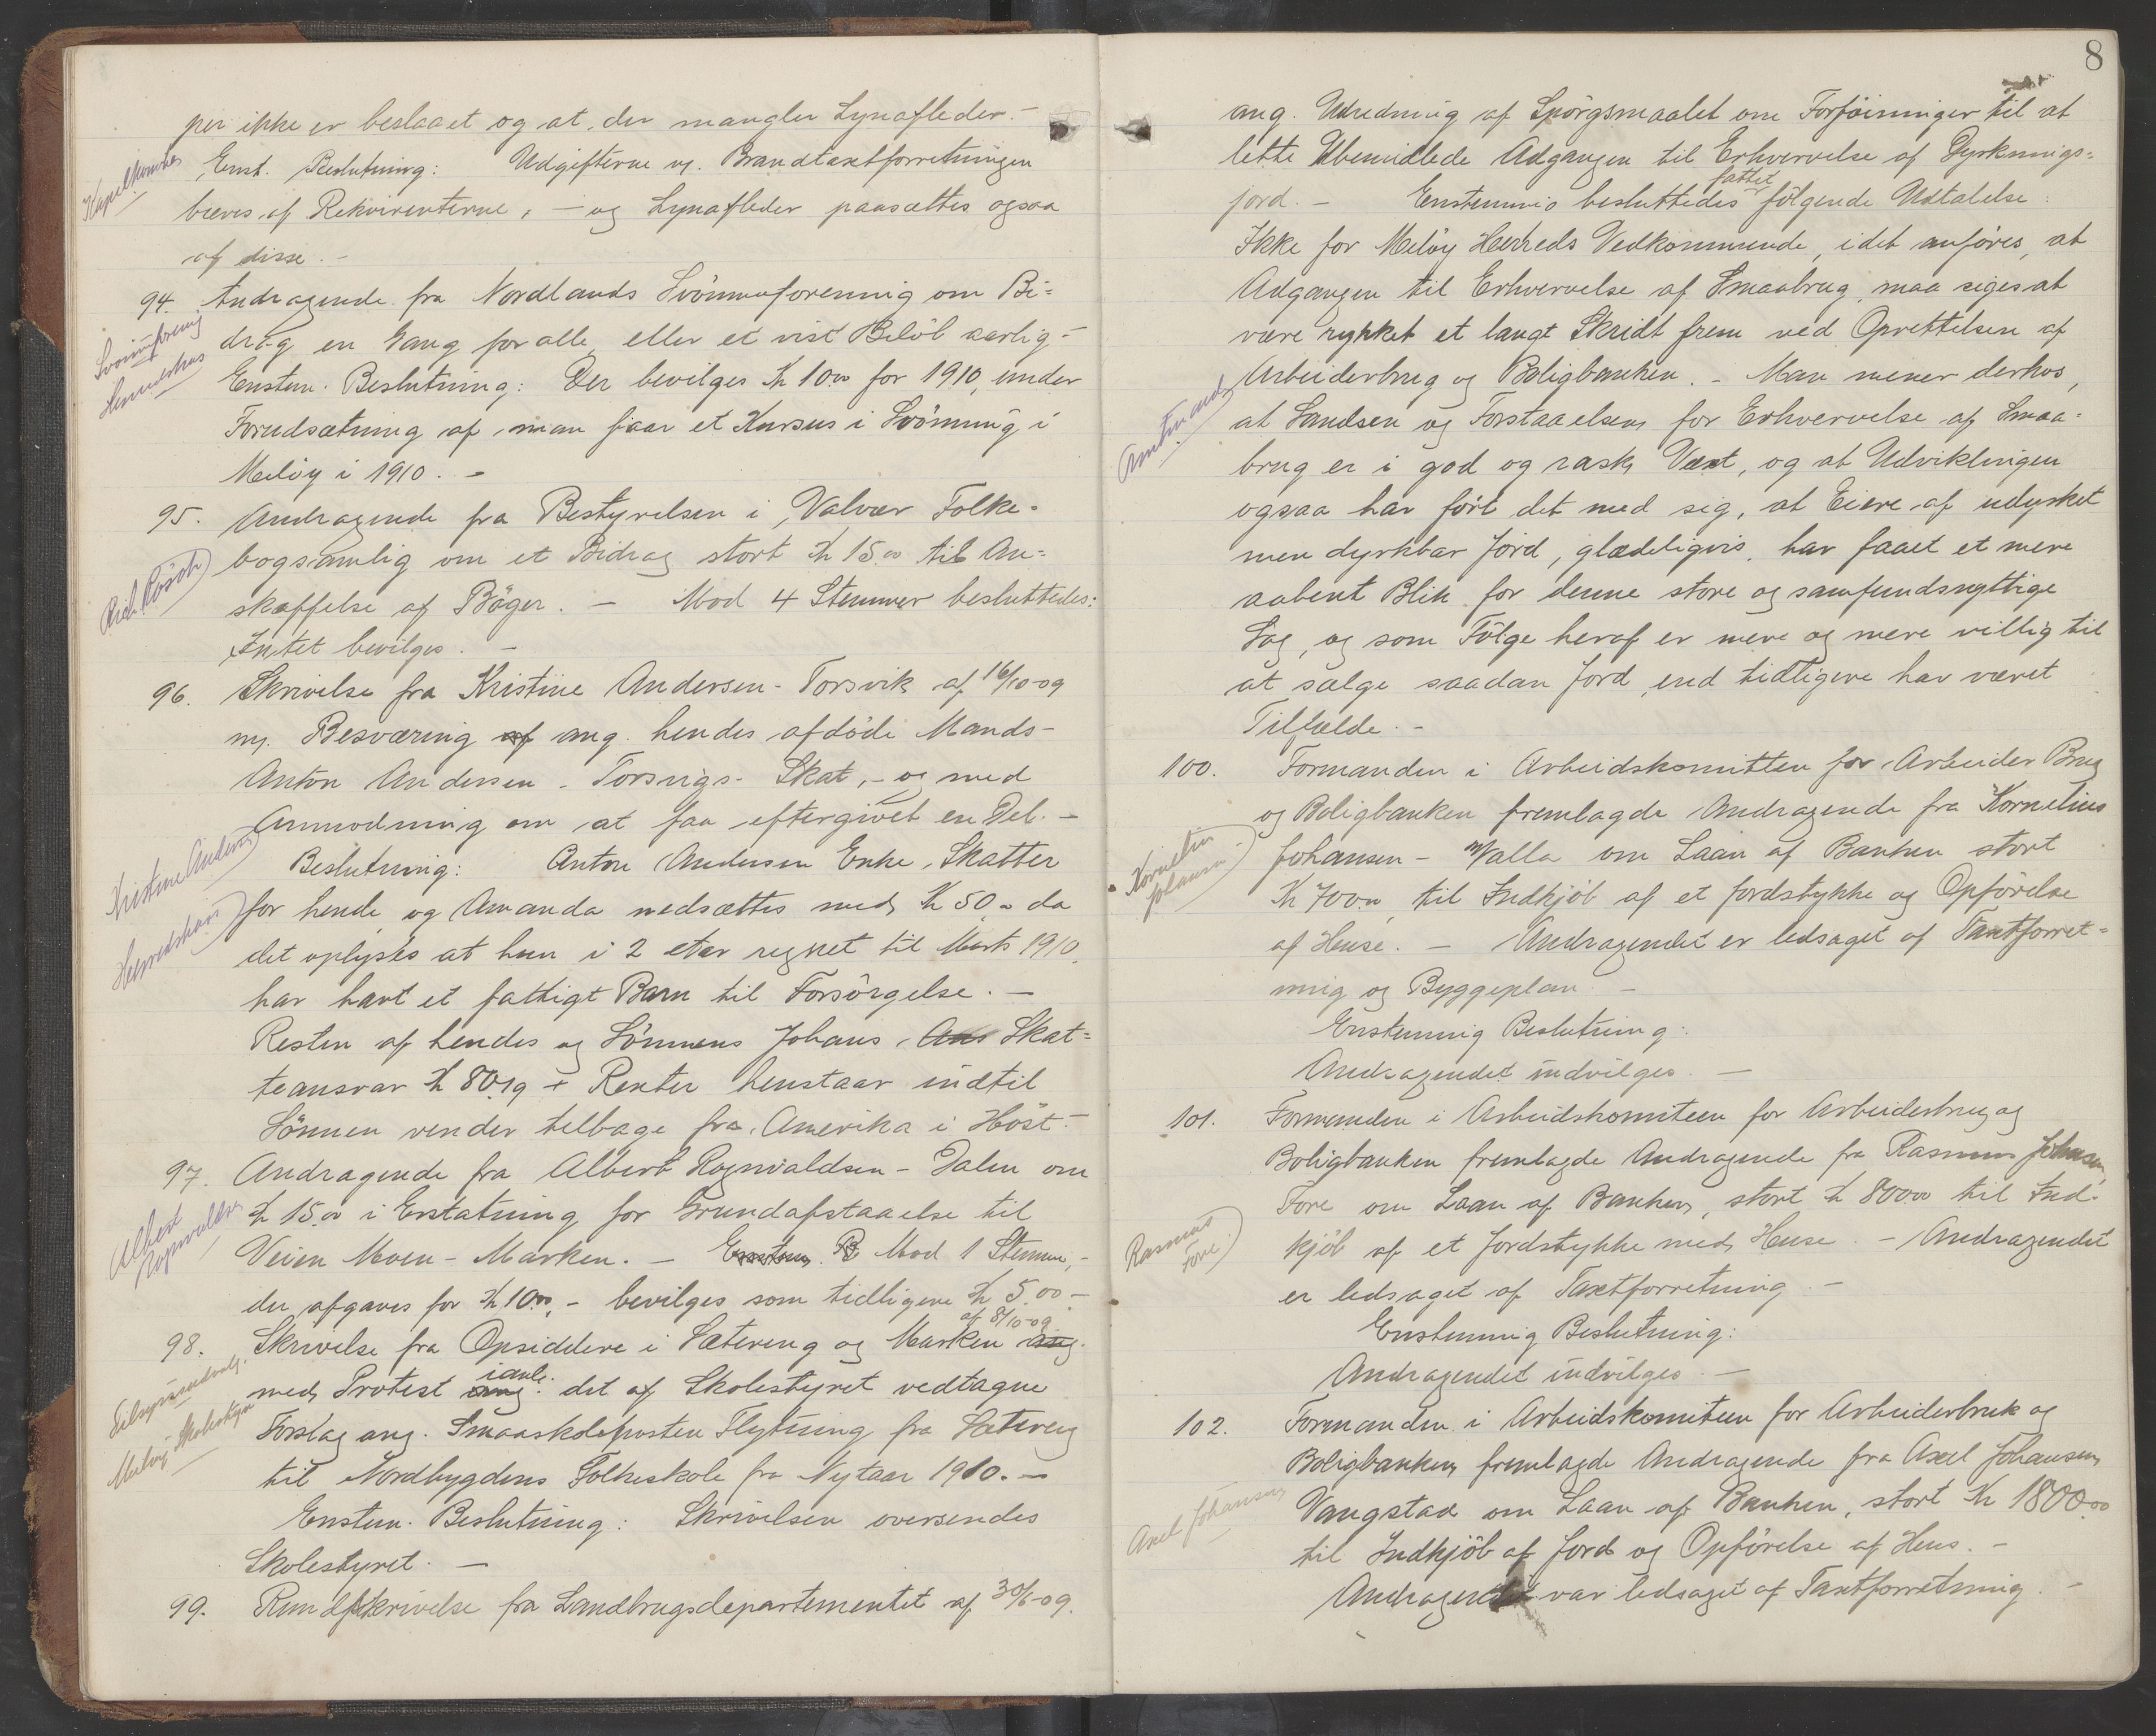 per ikke er beslaaet og at der mangler Lynafleder. -
Enst. Beslutning: Udgifterne v. Brandtaxtforretningen
bæres af Rekvirenterne, - og Lynafleder paasættes ogsaa
af disse. -
94. Andragende fra Nordlands Svömmeforening om Bi=
drag en Gang for alle, eller et vist Belöb aarlig -
Svömforening
Enstem. Beslutning: Der bevilges Kr 10.00 for 1910, under
Forudsætning af man faar et Kursus i Svömning i
Melöy i 1910. -
95. Andragende fra Bestyrelsen i Valvær Folke-
bogsamlig om et Bidrag stort Kr 15.00 til An=
skaffelse af Böger. - Mod 4 Stemmer besluttedes:
Intet bevilges. -
96. Skrivelse fra Kristine Andersen - Torsvik af 16/10-09
Besværing af ang. hendes afdöde Mands -
Anton Andersen - Torsvigs - Skat, - og med
Anmodning om at faa eftergivet en Del. -
Kristine Andersen
Beslutning: Anton Andersen Enke, Skatter
for hende og Amanda nedsættes med Kr 50.00 da
Herredskas
det oplyses at hun i 2 etar regnet til Marts 1910.
har havt et fattigt Barn til Forsörgelse. -
Resten af hendes og Sönnens Johans Skat=
teansvar Kr 80.19 + Renter henstaar indtil
Sönnen vender tilbage fra Amerika i Höst. -
97. Andragende fra Albert Rognvaldsen - Dalen om
Kr 15.00 i Erstatning for Grundafstaaelse til
Albert
Rognvaldsen
Veien Moen - Marken. - Enstem. B Mod 1 Stemme, -
der afgaves for Kr 10.00, - bevilges som tidligere Kr 5.00 -
af 8/10-09
98. Skrivelse fra Opsiddere i Sætereng og Marken ang.
med Protest ang. ianl. det af Skolestyret vedtagne
Melöy Skolestyre
Forslag ang. Smaaskoleposten Flytning fra Sætereng
til Nordbygdens Folkeskole fra Nytaar 1910. -
Enstem. Beslutning: Skrivelsen oversendes
Skolestyret. -
99. Rundskrivelse fra Landbrugsdepartementet af 30/6-09.
8
ang. Udredning af Spörgsmaalet om Forföininger til at
lette Ubemidlede Adgangen til Erhvervelse af Dyrknings=
jord. - Enstemmig besluttedes fattet fölgende Udtalelse:
Ikke for Melöy Herreds Vedkommende, idet anföres, at
Adgangen til Erhvervelse af Smaabrug, maa siges at
være rykket et langt Skridt frem ved Oprettelsen af
Arbeiderbrug og Boligbanken. - Man mener derhos,
at Sandsen og Forstaaelsen for Erhvervelse af Smaa=
brug er i god og rask Vext, og at Udviklingen
ogsaa har fört det med sig, at Eiere af udyrket
men dyrkbar Jord, glædeligvis, har faaet et mere
aabent Blik for denne store og samfundsnyttige
Sag, og som Fölge heraf er mere og mere villig til
at sælge saadan Jord, end tidligere har været
Tilfælde. -
100. Formanden i Arbeidskomitten for Arbeider Brug
og Boligbanken fremlagde Andragende fra Kornelius
Kornelius
Johansen
Johansen - Valla om Laan af Banken stort
Kr 700.00, til Indkjöb af et Jordstykke og Opförelse
af Huse. - Andragendet er ledsaget af Taxtforret=
ning og Byggeplan. -
Enstemmig Beslutning:
Andragendet indvilges. -
101. Formanden i Arbeidskomiteen for Arbeiderbrug og
Boligbanken fremlagde Andragende fra Rasmus Johnsen,
Fore om Laan af Banken, stort Kr 800.00 til Ind-
Rasmus
Fore
kjöb af et Jordstykke med Huse. - Andragendet
er ledsaget af Taxtforretning. -
Enstemmig Beslutning:
Andragendet indvilges. -
102. Formanden i Arbeidskomiteen for Arbeiderbruk og
Boligbanken fremlagde Andragende fra Axel Johansen,
Axel Johansen
Vangstad om Laan af Banken, stort Kr 1800.00
til Indkjöb af Jord og Opförelse af Hus. -
Andragendet var ledsaget af Taxtforretning. -